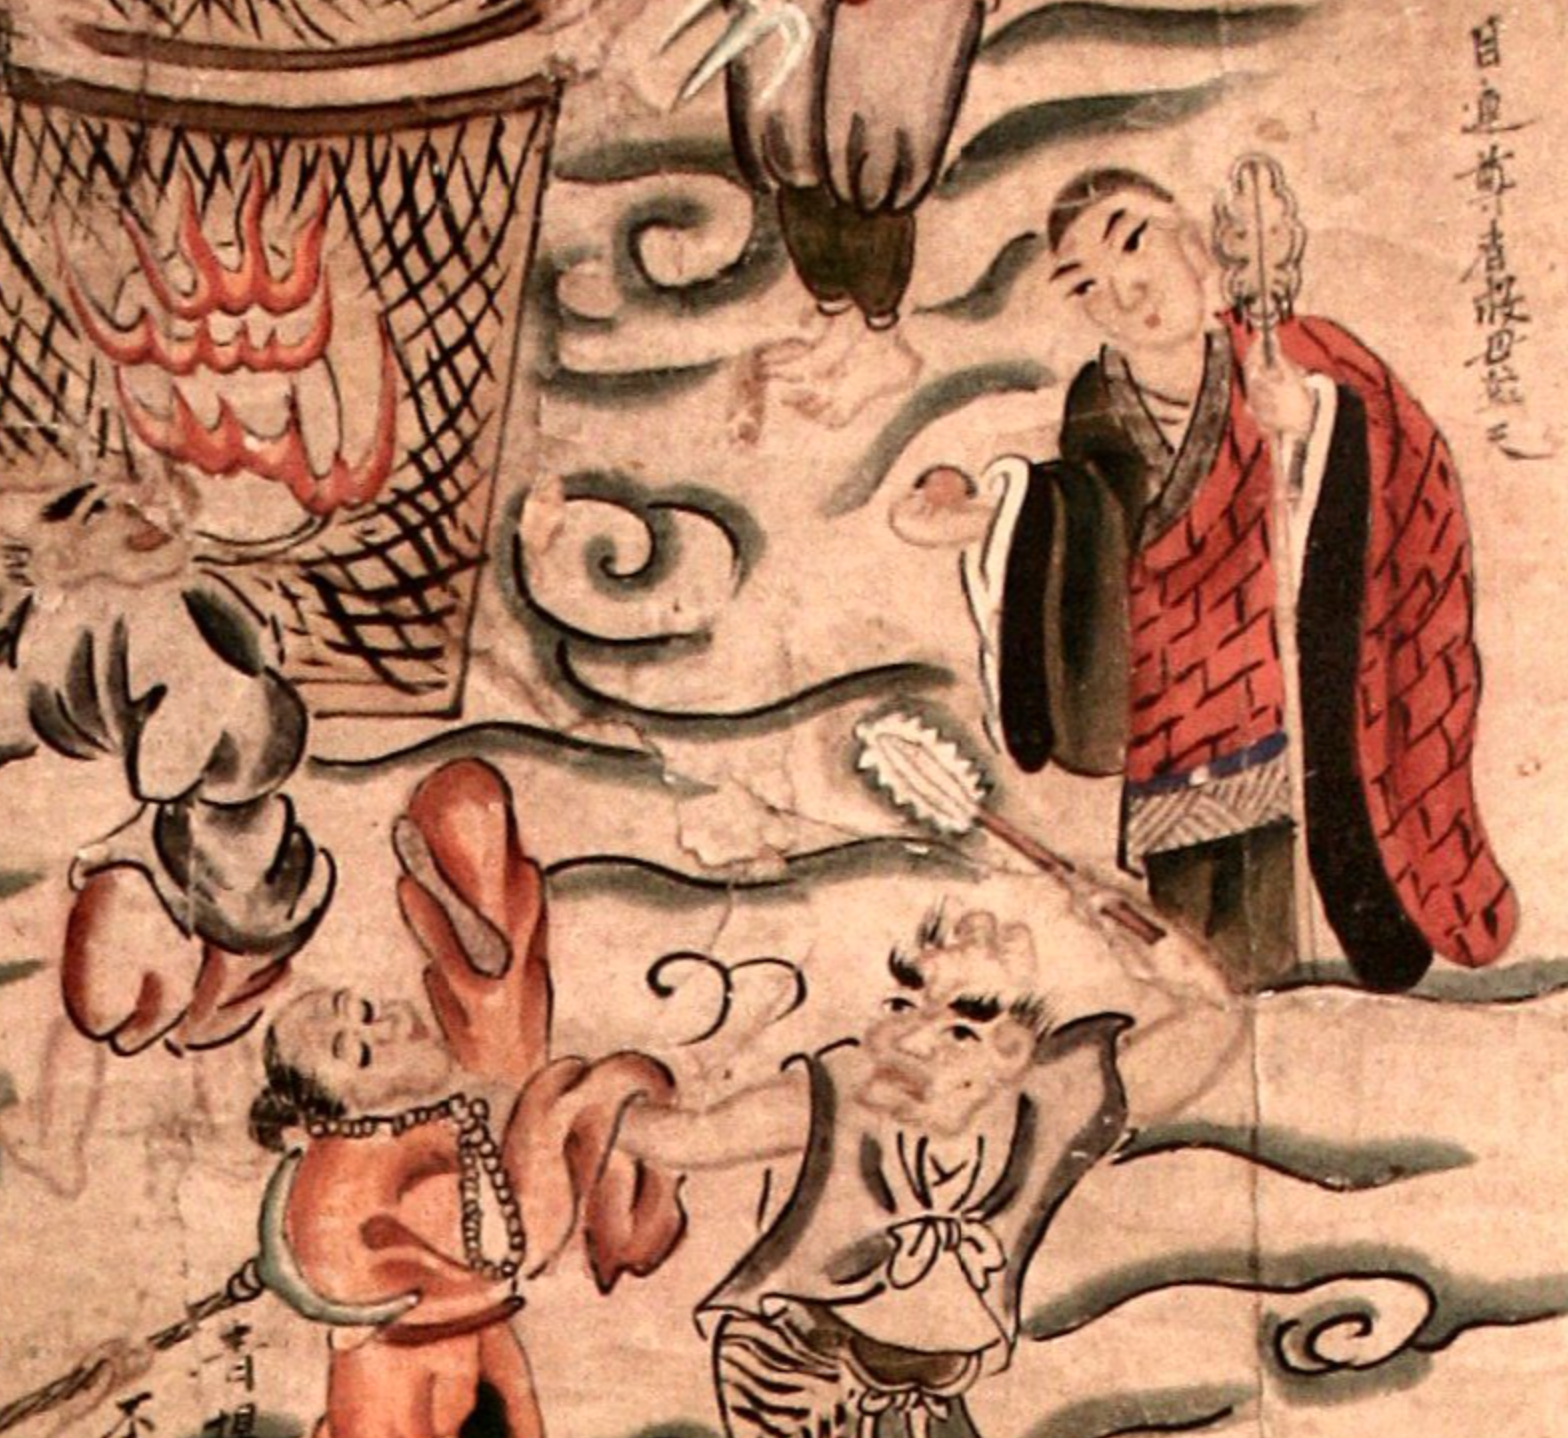 目連尊者救母
青提
不